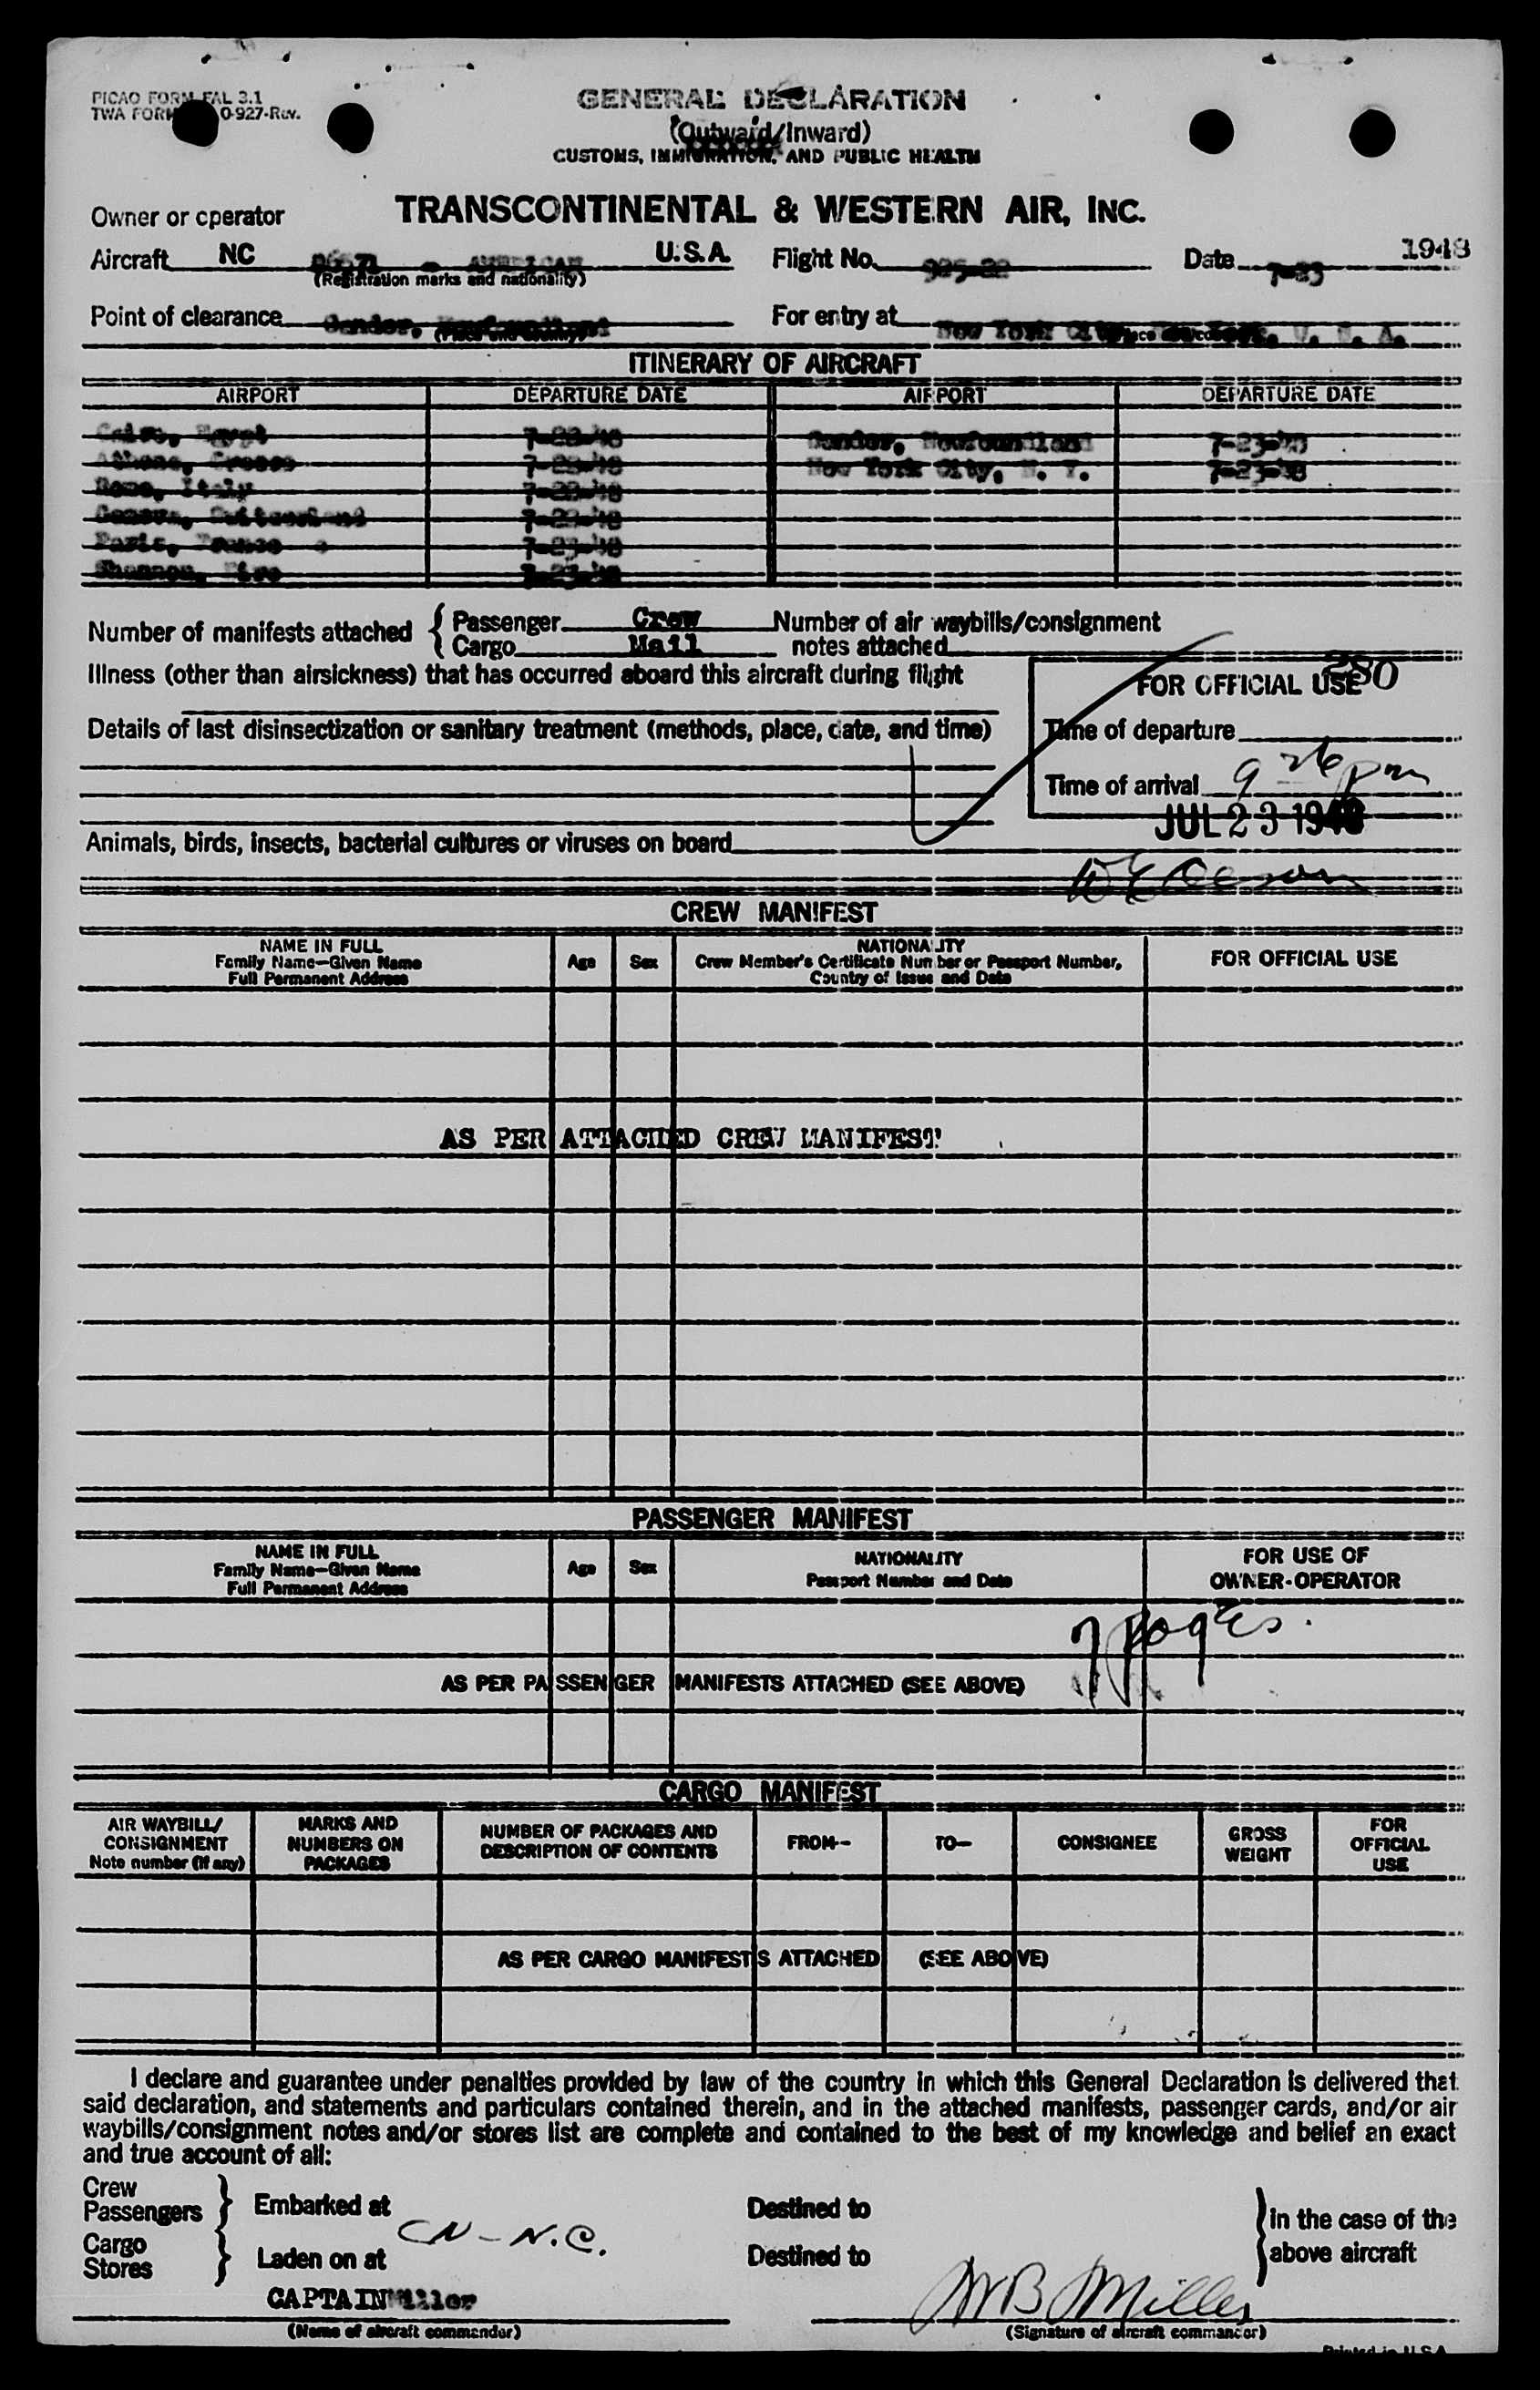 PICAO FORM FAL 3.1
TWA FORM 0-927-Rev.
GENERAL DECLARATION
(Outward/Inward)
CUSTOMS, IMMIGRATION, AND PUBLIC HEALTH
Owner or operator TRANSCONTINENTAL & WESTERN AIR, INC.
Aircraft NC AMERICAN U.S.A. Flight No. 925-22 Date 7-23 1948
(Registration marks and nationality)
Point of clearance Gander, Newfoundland For entry at New York City, U. S. A.
ITINERARY OF AIRCRAFT
AIRPORT DEPARTURE DATE AIRPORT DEPARTURE DATE
Cairo, Egypt 7-22-48 Gander, Newfoundland 7-23-48
Athens, Greece 7-22-48 New York City, N. Y. 7-23-48
Rome, Italy 7-22-48
Geneva, Switzerland 7-22-48
Paris, France 7-23-48
Shannon, Eire 7-23-48
Number of manifests attached { Passenger Crew Number of air waybills/consignment
Cargo Mail notes attached
Illness (other than airsickness) that has occurred aboard this aircraft during flight
FOR OFFICIAL USE 280
Details of last disinsectization or sanitary treatment (methods, place, date, and time)
Time of departure
Time of arrival 9 26 pm
JUL 23 1948
Animals, birds, insects, bacterial cultures or viruses on board
CREW MANIFEST
NAME IN FULL
Family Name—Given Name
Full Permanent Address
Age Sex
NATIONALITY
Crew Member's Certificate Number or Passport Number,
Country of Issue and Date
FOR OFFICIAL USE
AS PER ATTACHED CREW MANIFEST
PASSENGER MANIFEST
NAME IN FULL
Family Name—Given Name
Full Permanent Address
Age Sex
NATIONALITY
Passport Number and Date
FOR USE OF
OWNER-OPERATOR
7 pages.
AS PER PASSENGER MANIFESTS ATTACHED (SEE ABOVE)
CARGO MANIFEST
AIR WAYBILL/
CONSIGNMENT
Note number (if any)
MARKS AND
NUMBERS ON
PACKAGES
NUMBER OF PACKAGES AND
DESCRIPTION OF CONTENTS
FROM—
TO—
CONSIGNEE
GROSS
WEIGHT
FOR
OFFICIAL
USE
AS PER CARGO MANIFESTS ATTACHED (SEE ABOVE)
I declare and guarantee under penalties provided by law of the country in which this General Declaration is delivered that
said declaration, and statements and particulars contained therein, and in the attached manifests, passenger cards, and/or air
waybills/consignment notes and/or stores list are complete and contained to the best of my knowledge and belief an exact
and true account of all:
Crew
Passengers } Embarked at Destined to
Cargo
Stores } Laden on at Destined to
} in the case of the
above aircraft
CN - N.C.
CAPTAIN Miller
W B Miller
(Name of aircraft commander) (Signature of aircraft commander)
Printed in U.S.A.